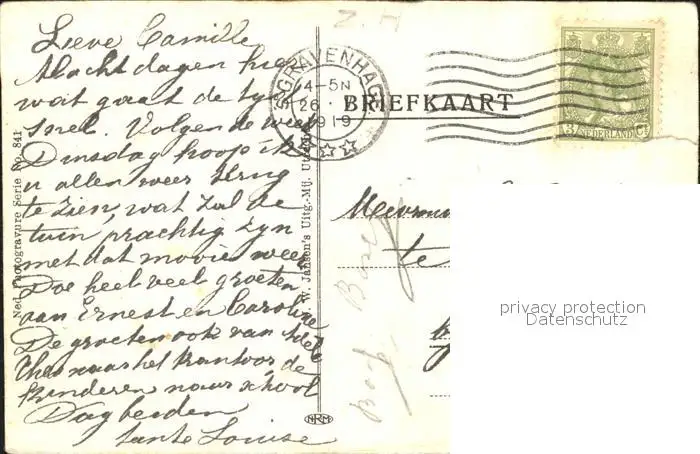 Lieve Camille
Al acht dagen hier
wat gaat de tyd
snel. Volgende week
Dinsdag hoop ik
u allen weer terug
te zien, wat zal de
tuin prachtig zyn
met dat mooie weer
Doe heel veel groeten
aan Ernest en Caroline
De groeten ook van
Theo naar het kantoor, de
kinderen naar school
Dag beiden
tante Louise
Ned. Photogravure Serie No. 841
Janson's Uitg.-Mij.
NRM
Z. H
'S GRAVENHAGE
4-5N
26
1919
BRIEFKAART
3 NEDERLAND Ct
Mevrouw
te
privacy protection
Datenschutz